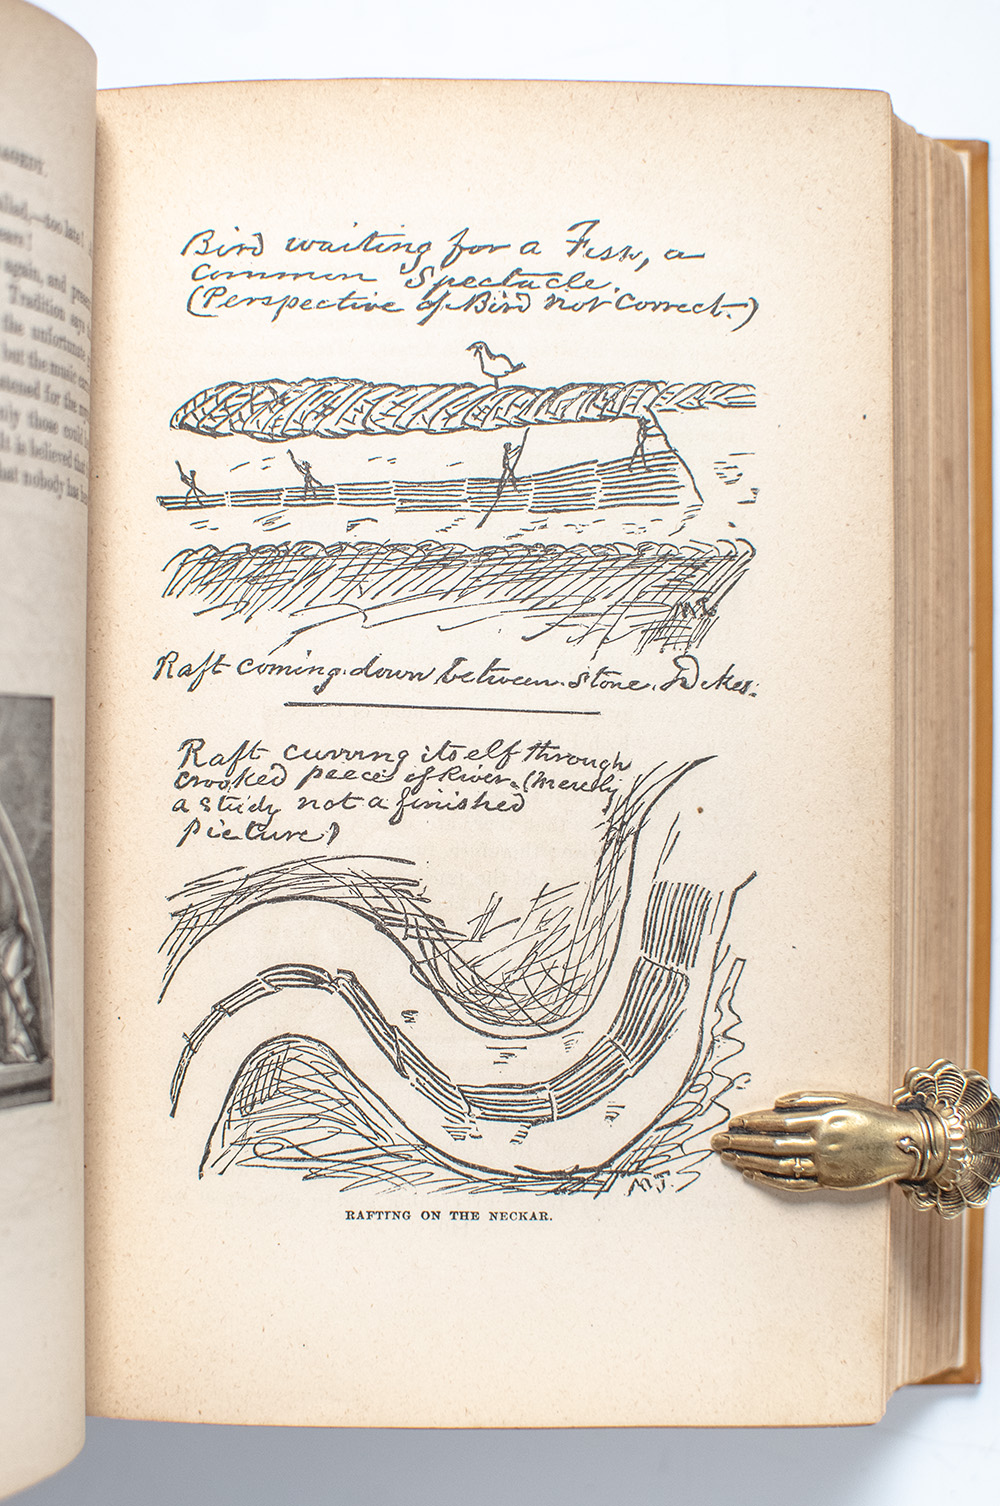 AGEDY.
alled,—too late!
ears!
again, and
Tradition says
the unfortunate
but the music
stened for the
only those could
It is believed that
that nobody has
Bird waiting for a Fish, a
common Spectacle.
(Perspective of Bird not correct.)
M.T.
Raft coming down between stone Dikes.
Raft curving itself through
crooked peece of River. (Merely
a study not a finished
picture)
M.T.
RAFTING ON THE NECKAR.